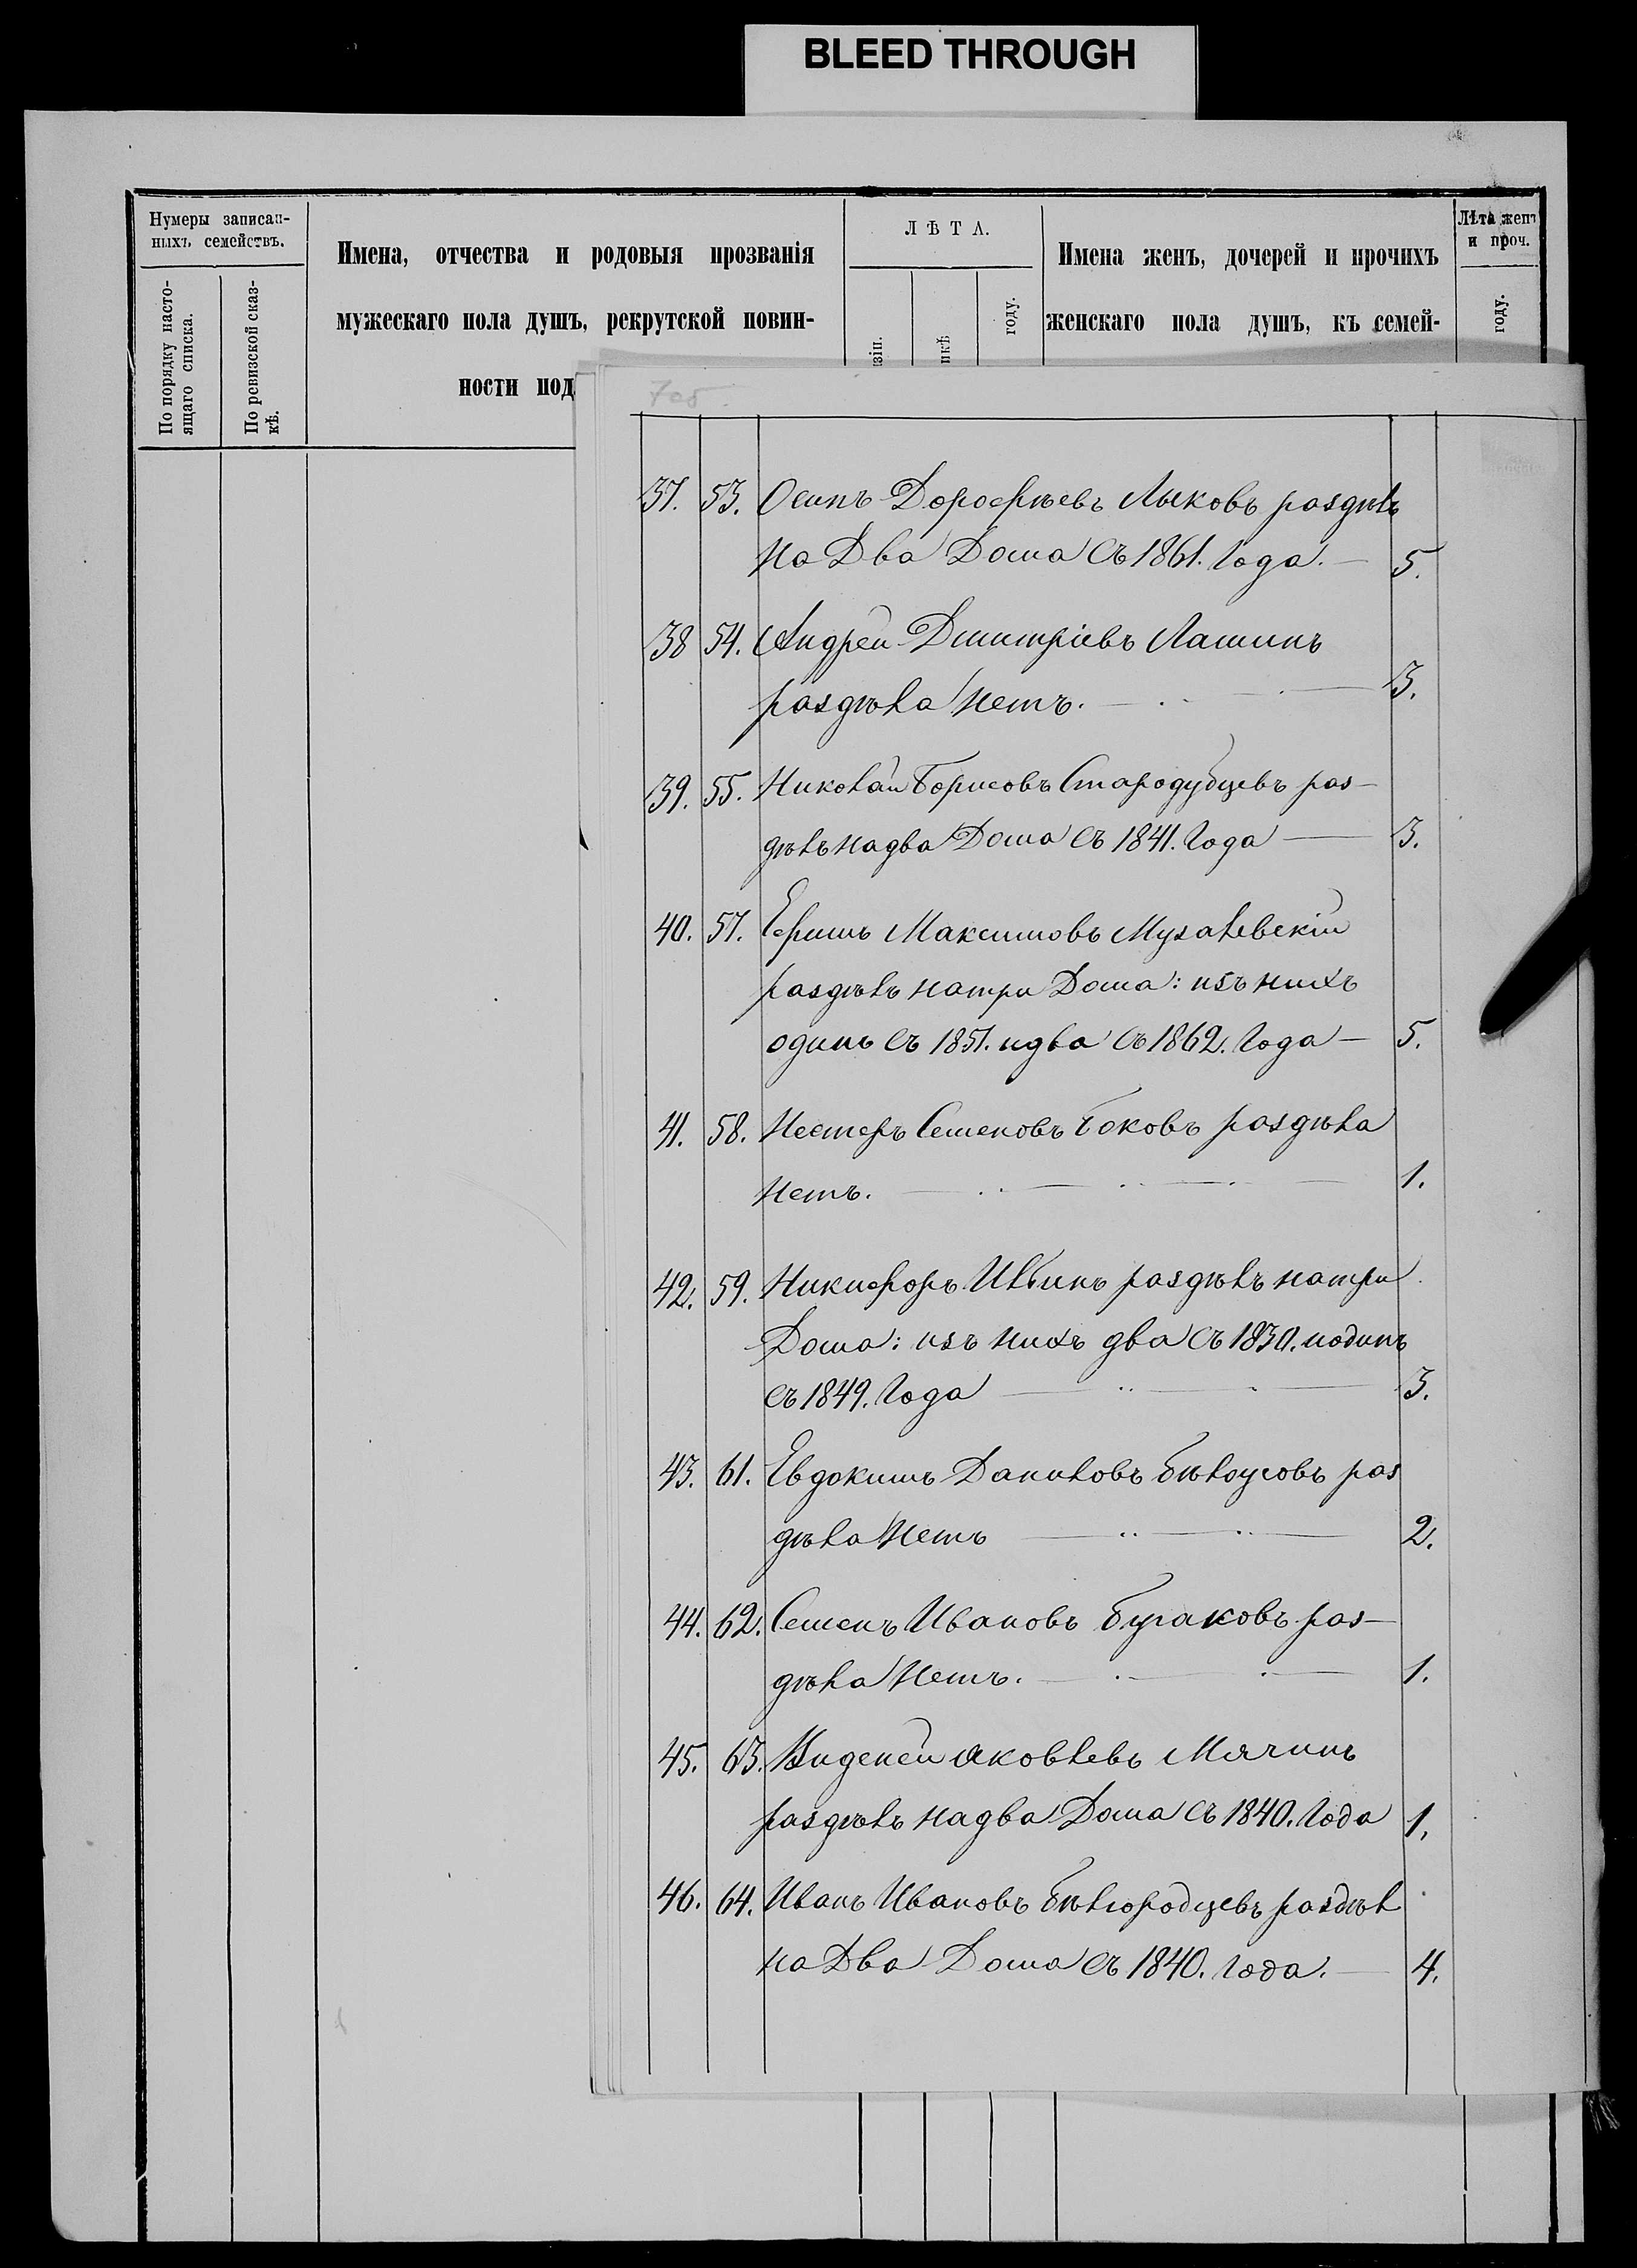 BLEED THROUGH
Нумеры записан-
ныхъ семействъ.
По порядку насто-
ящаго списка.
По ревизской сказ-
кѣ.
Имена, отчества и родовыя прозванія
мужескаго пола душъ, рекрутской повин-
ности под
ЛѢТА.
году.
Имена женъ, дочерей и прочихъ
женскаго пола душъ, къ семей-
Лѣта женъ
и проч.
году.
705
37. 53. Осипъ Дорофѣевъ Лыковъ раздѣлъ
на Два Дома съ 1861. Года. 5.
38 54. Андрей Дмитріевъ Лашинъ
раздѣла нетъ. 3.
39. 55. Николай Борисовъ Стародубцевъ раз-
дѣлъ на два Дома съ 1841. Года 3.
40. 57. Ефимъ Максимовъ Музалевскій
раздѣлъ натри Дома: изъ нихъ
одинъ съ 1851. идва съ 1862. Года 5.
41. 58. Нестеръ Семеновъ Боковъ раздѣла
нетъ. 1.
42. 59. Никифоръ Ильинъ раздѣлъ натри
Дома: изъ нихъ два съ 1830. иодинъ
съ 1849. Года 3.
43. 61. Евдокимъ Даниловъ Бѣлоусовъ раз
дѣла нетъ 2.
44. 62. Семенъ Ивановъ Бураковъ раз-
дѣла нетъ. 1.
45. 63. Яковлевъ Мячинъ
раздѣлъ надва Дома съ 1840. Года 1.
46. 64. Иванъ Ивановъ Бѣлгородцевъ раздѣл
на Два Дома съ 1840. Года. 4.